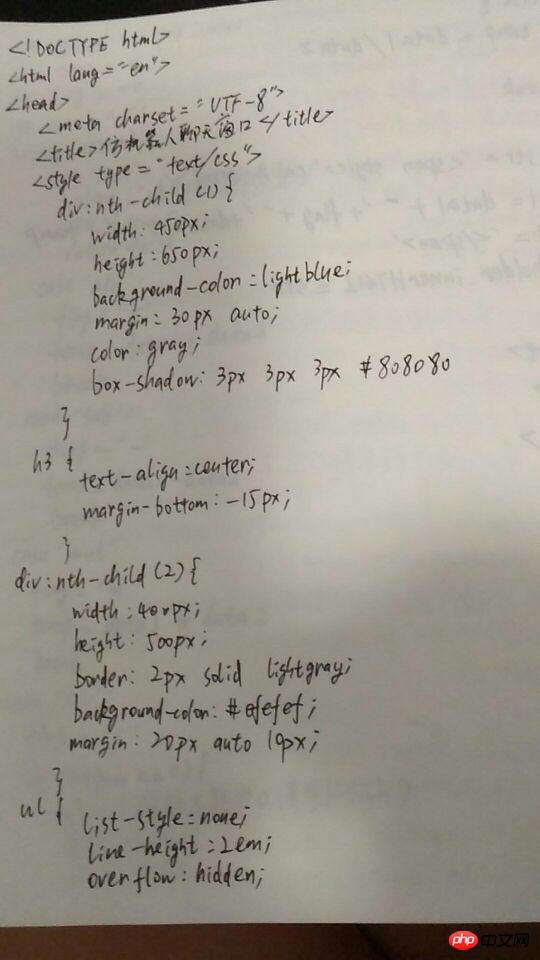 <!DOCTYPE html>
<html lang="en">
<head>
<meta charset="UTF-8">
<title>仿机器人聊天窗口</title>
<style type="text/css">
div:nth-child(1){
width: 450px;
height: 650px;
background-color: lightblue;
margin: 30px auto;
color: gray;
box-shadow: 3px 3px 3px #808080
}
h3 {
text-align: center;
margin-bottom: -15px;
}
div:nth-child(2){
width: 400px;
height: 500px;
border: 2px solid lightgray;
background-color: #efefef;
margin: 20px auto 10px;
}
ul {
list-style: none;
line-height: 2em;
overflow: hidden;
php 中文网